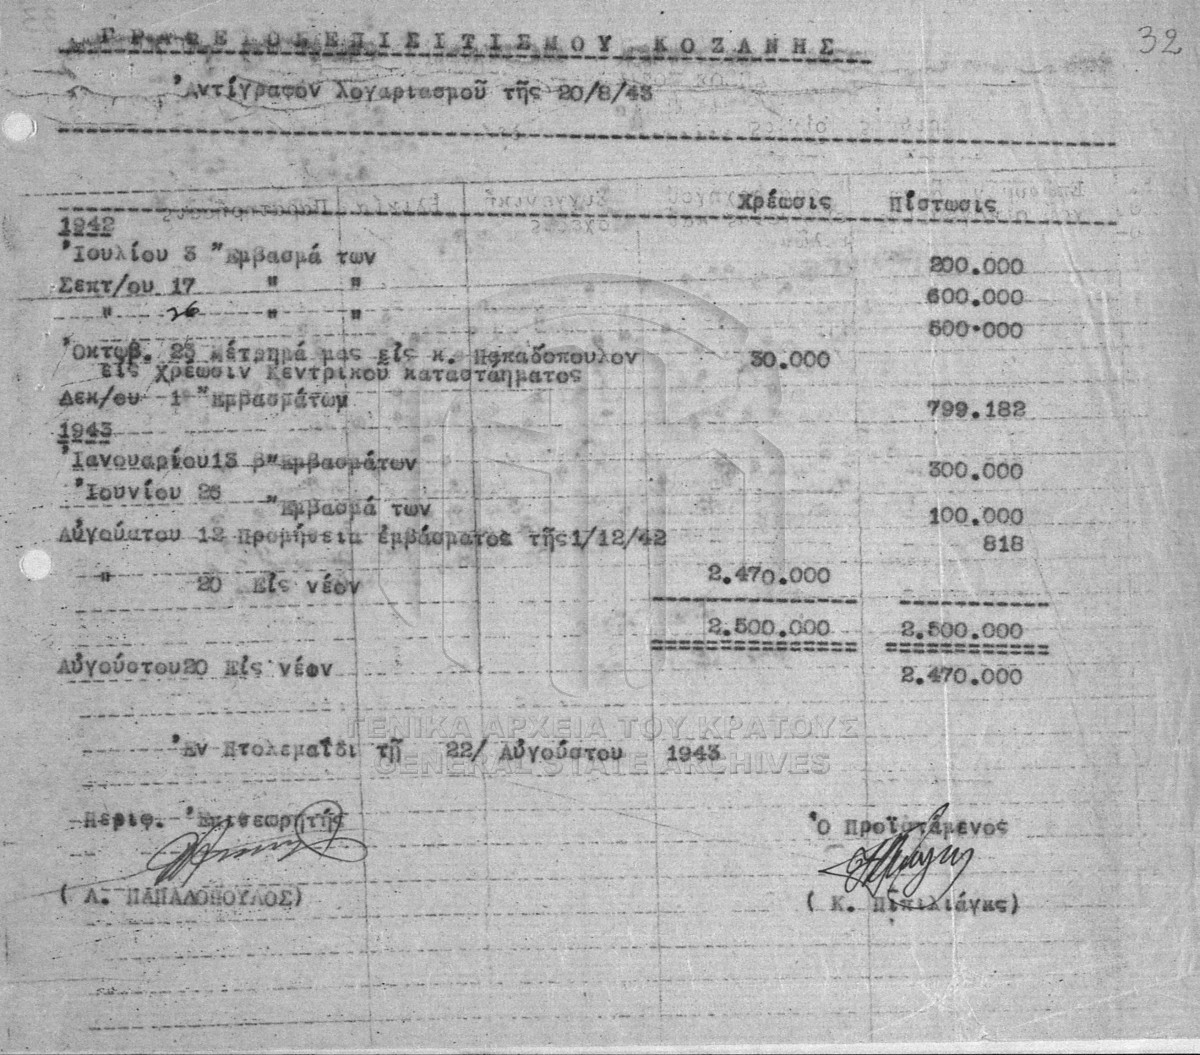 32
ΓΡΑΦΕΙΟΝ ΕΠΙΣΙΤΙΣΜΟΥ ΚΟΖΑΝΗΣ
Ἀντίγραφον λογαριασμοῦ τῆς 20/8/43
Χρέωσις Πίστωσις
1942
Ἰουλίου 3 "Εμβασμά των 200.000
Σεπτ/ου 17 " " 600.000
" 26 " " 500.000
Ὀκτωβ. 23 μέτρημά μας εἰς κ. Παπαδοπουλον 30.000
εἰς χρέωσιν Κεντρικοῦ καταστάηματος
Δεκ/ου 1 "Εμβασμάτων 799.182
1943
Ἰανουαρίου 13 β"Εμβασμάτων 300.000
Ἰουνίου 26 "Εμβασμά των 100.000
Αὐγούστου 12 Προμήθεια ἐμβάσματος τῆς 1/12/42 818
" 20 Εἰς νέον 2.470.000
2.500.000 2.500.000
Αὐγούστου 20 Εἰς νέον 2.470.000
ΓΕΝΙΚΑ ΑΡΧΕΙΑ ΤΟΥ ΚΡΑΤΟΥΣ
Ἐν Πτολεμαΐδι τῇ 22/ Αὐγούστου 1943
GENERAL STATE ARCHIVES
Περιφ. Ἐπιθεωρητής Ὁ Προϊστάμενος
( Λ. ΠΑΠΑΔΟΠΟΥΛΟΣ) ( Κ. Πιπιλιάγκς)